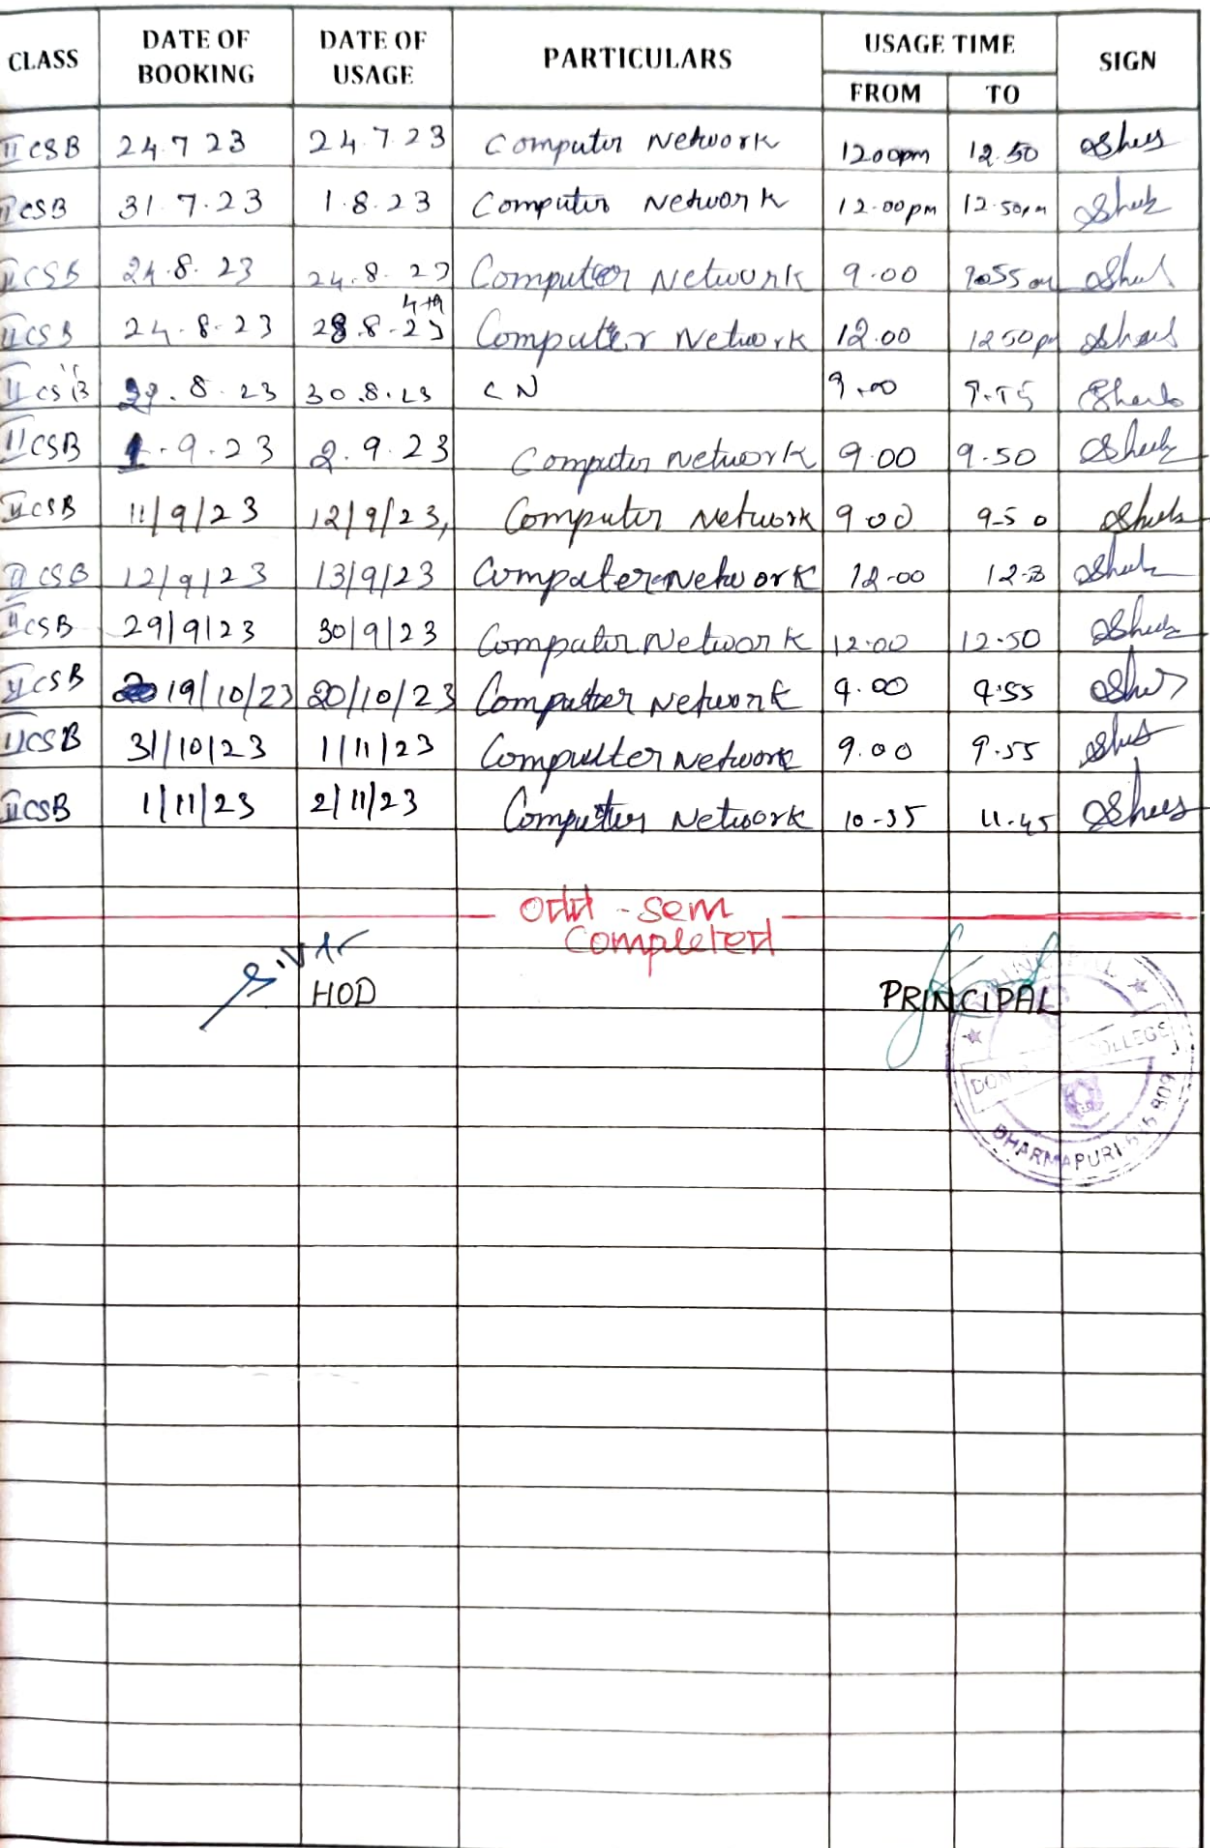 CLASS DATE OF BOOKING DATE OF USAGE PARTICULARS USAGE TIME FROM TO SIGN
II CSB 24.7 23 24.7.23 Computer Network 1200pm 12.50
II CSB 31.7.23 1.8.23 Computer Network 12.00pm 12.50pm
II CSB 24.8.23 24.8.23 Computer Network 9.00
II CSB 24.8.23 28.8.23 Computer Network 12.00 12 50pm
II CSB 29.8.23 30.8.23 CN 9.00 9.55
II CSB 1.9.23 2.9.23 Computer Network 9.00 9.50
II CSB 11/9/23 12/9/23, Computer Network 9 00 9-50
II CSB 12/9/23 13/9/23 Computer Network 12-00
II CSB 29/9/23 30/9/23 Computer Network 12.00 12.50
II CSB 19/10/23 20/10/23 Computer Network 9.00 9.55
II CSB 31/10/23 1/11/23 Computer Network 9.00 9.55
II CSB 1/11/23 2/11/23 Computer Network 10-55 11.45
Odd - sem
Completed
HOD PRINCIPAL
DHARMAPURI